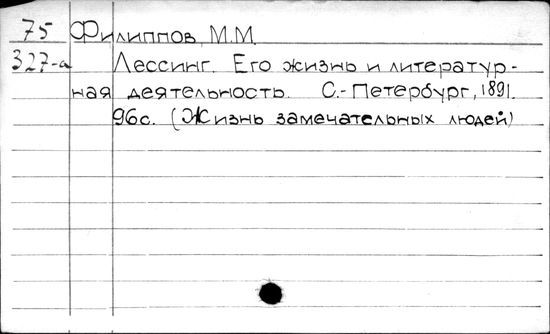 75 Филиппов, М.М.
327-а Лессинг. Его жизнь и литератур-
ная деятельность. С.-Петербург, 1891.
96с. (Жизнь замечательных людей)